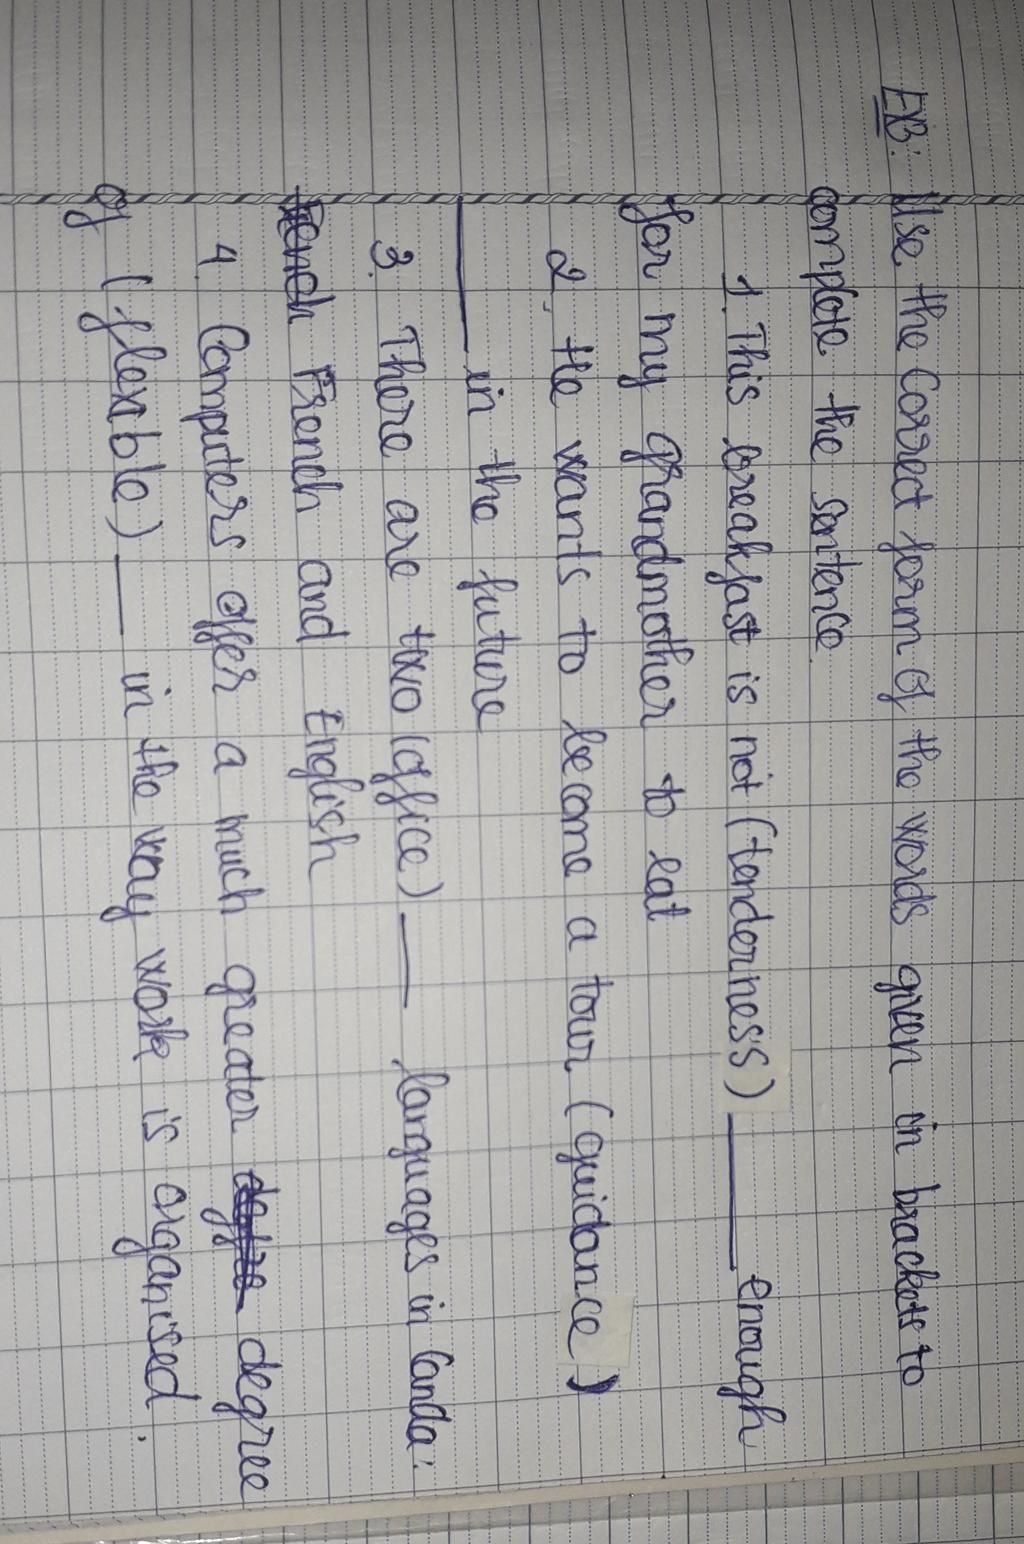 EB: Use the Correct form of the words given in brackets to
complete the sentence.
1. This breakfast is not (tenderness) ____ enough
for my grandmother to eat
2. He wants to become a tour (guidance)
____ in the future
3. There are two (office) ____ languages in Canda:
French and English
4. Computers offer a much greater degree
of (flexible) ____ in the way work is organised.